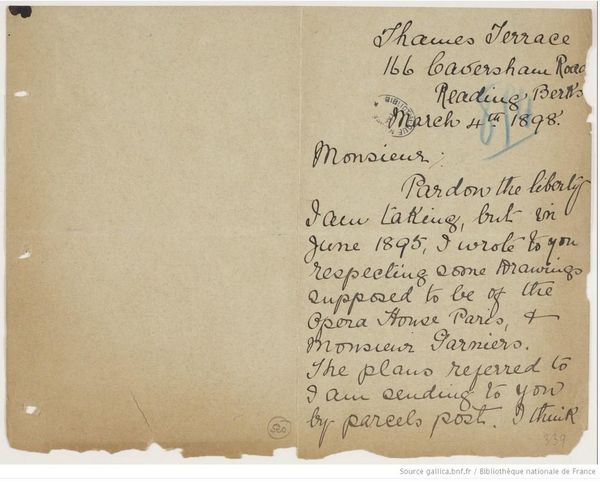 Thames Terrace
166 Caversham Road
Reading Berks
March 4th 1898.
Monsieur,
Pardon the liberty
I am taking, but in
June 1895, I wrote to you
respecting some drawings
supposed to be of the
Opera House Paris, &
Monsieur Garniers.
The plans referred to
I am sending to you
by parcels post. I think
520
339
Source gallica.bnf.fr / Bibliothèque nationale de France